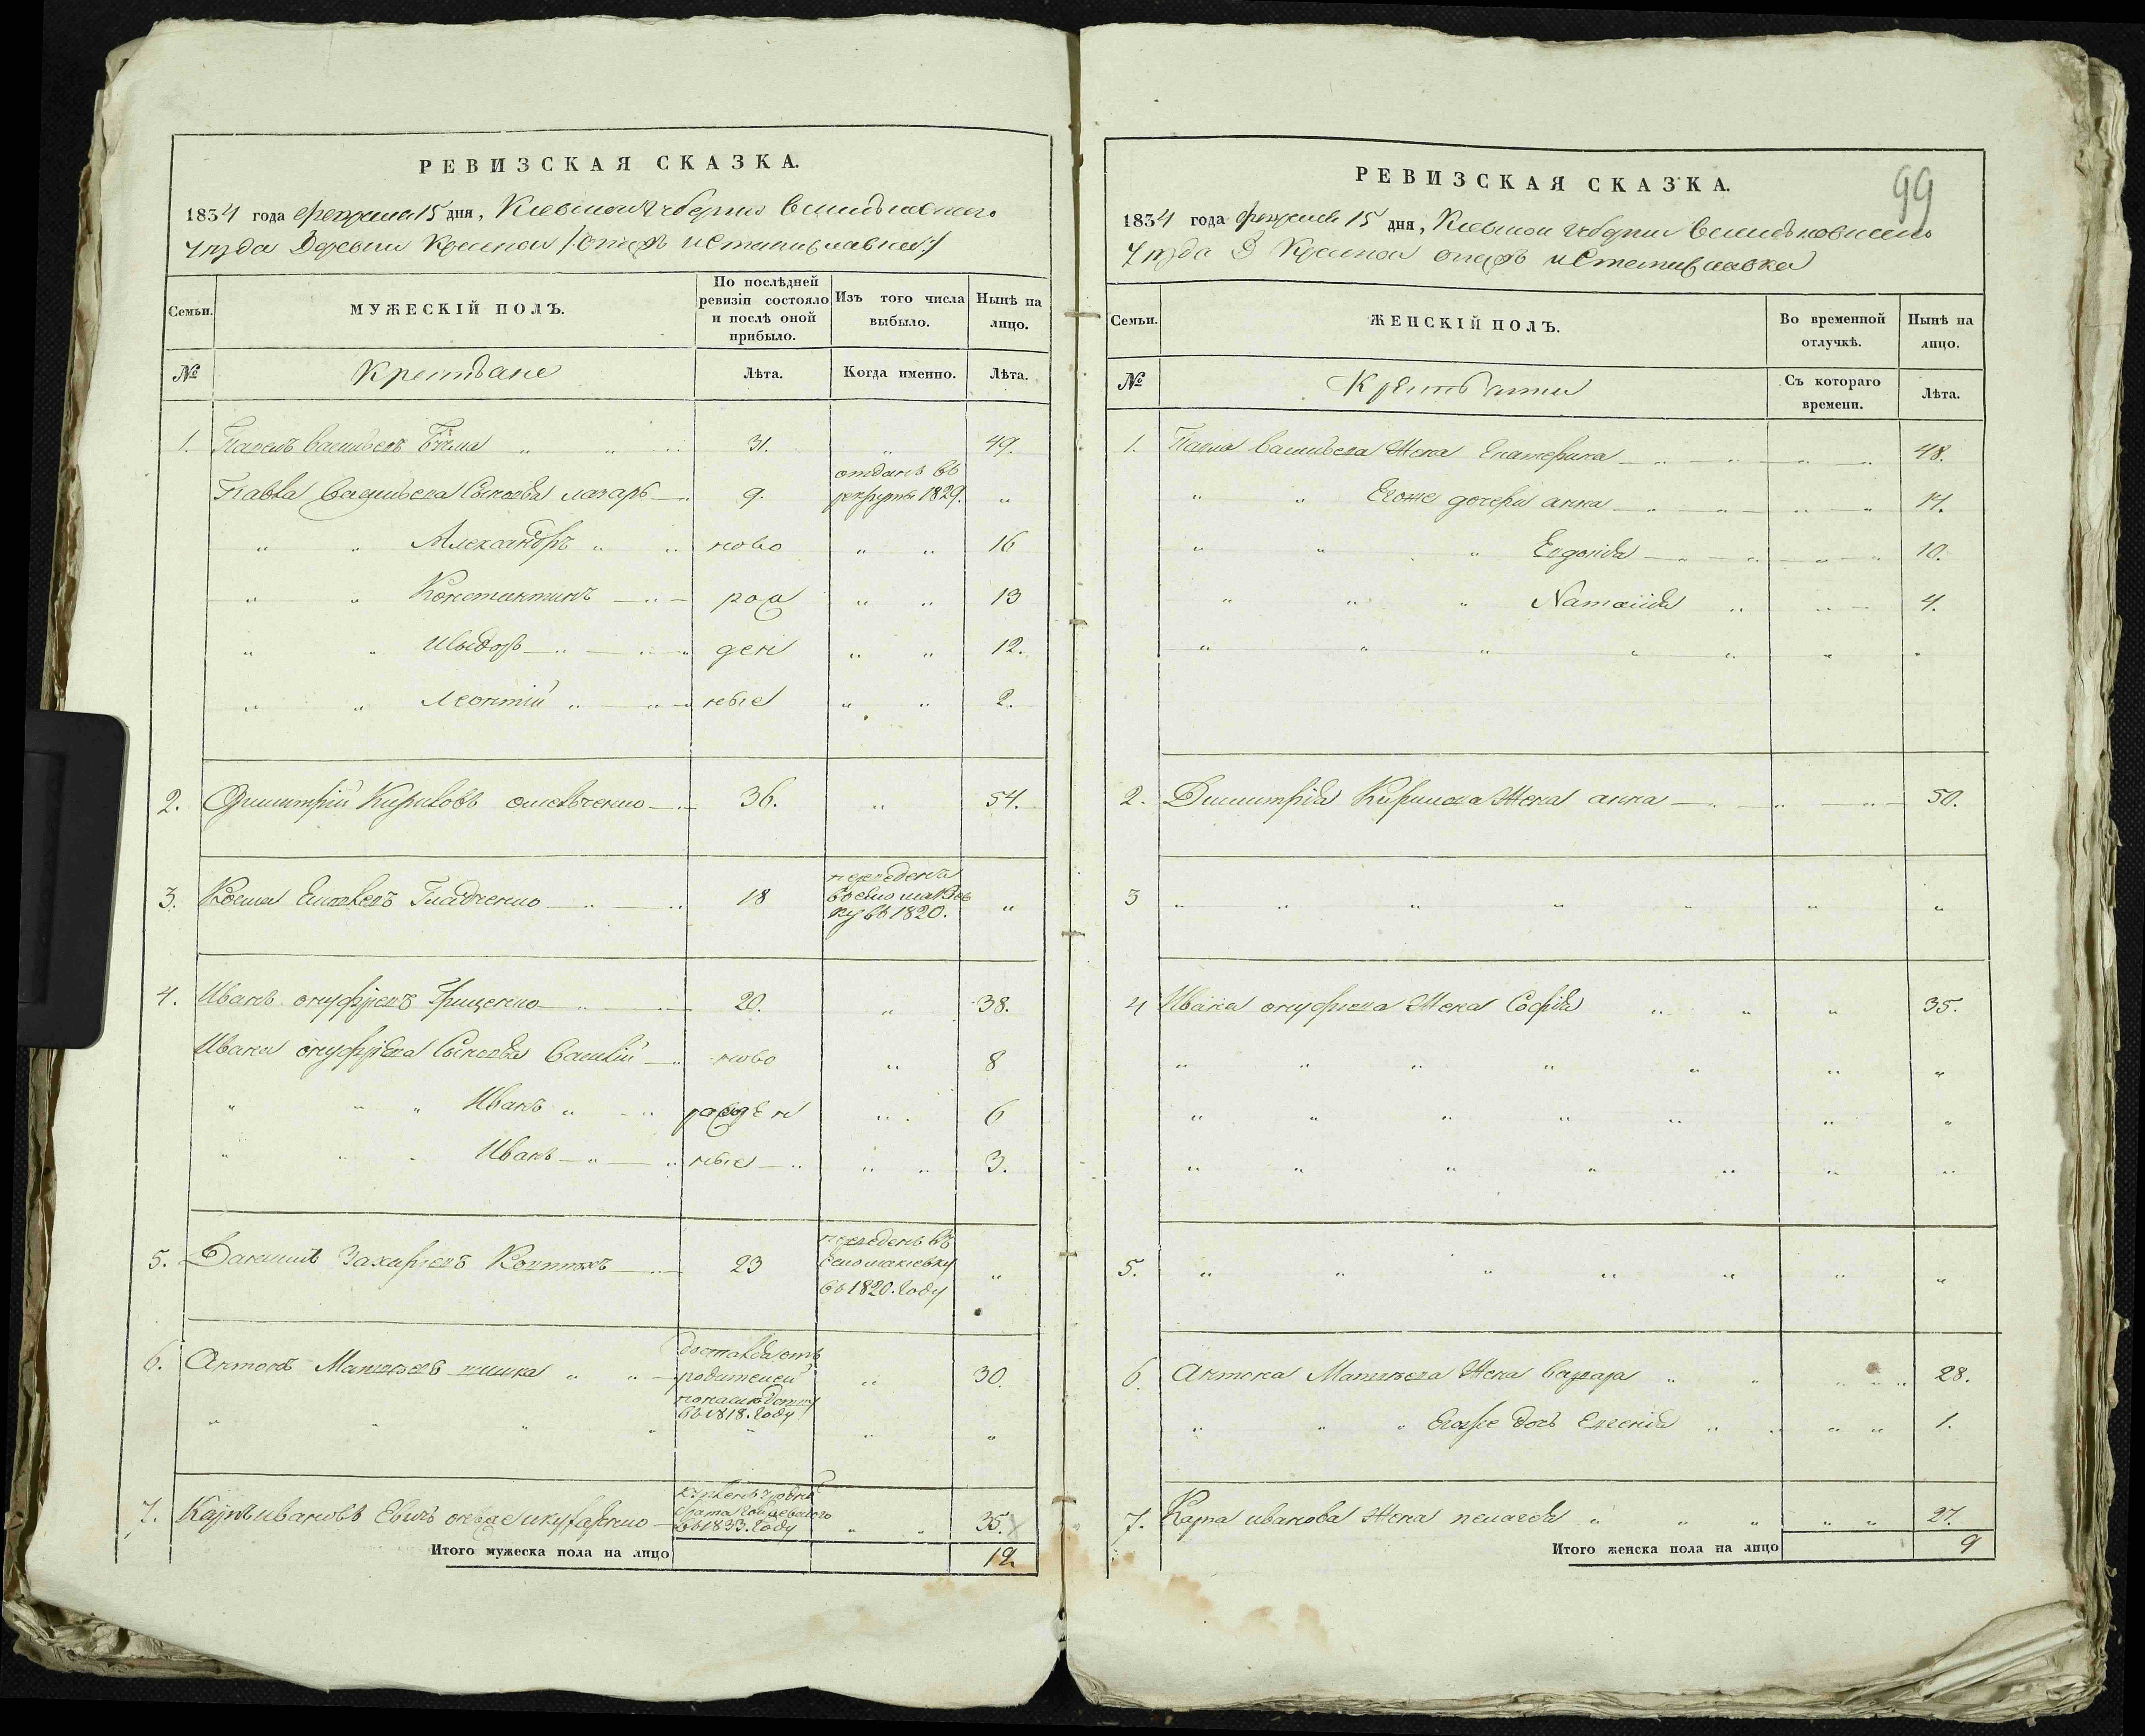 РЕВИЗСКАЯ СКАЗКА.
1834 года февраля 15 дня, Киевской губернии Васильковского
уезда Деревни Красной /: онаж и Станиславка :/
Семьи. МУЖЕСКІЙ ПОЛЪ. По послѣдней ревизіи состояло и послѣ оной прибыло. Изъ того числа выбыло. Нынѣ на лицо.
№ Крестьяне Лѣта. Когда именно. Лѣта.
1. Павелъ Васильевъ 31. " 49.
Павла Васильева Сыновья Лазарь 9. отданъ въ рекруты 1829. "
" " Александръ ново " " 16
" " Константинъ рож " " 13
" " ден " " 12.
" " Леонтій ные " " 2.
2. Димитрій Кириловъ 36. " 54.
3. Козма Гладченко 18 переведенъ въ село въ 1820. "
4. Иванъ Онуфріевъ Грищенко 20. " 38.
Ивана Онуфріева Сыновья Василій ново " 8
" " " Иванъ рожден " 6
" " " Иванъ ные " " 3.
5. Захаріевъ 23 переведенъ въ село въ 1820. году "
6. Антонъ Матвѣевъ " " родителей въ 1818. году " 30.
" " " " " " "
7. Карпъ Ивановъ въ 1833. году " " 35.
Итого мужеска пола на лицо 12.
РЕВИЗСКАЯ СКАЗКА.
99
1834 года февраля 15 дня, Киевской губернии Васильковского
уезда Д Красной онажъ и Станиславка
Семьи. ЖЕНСКІЙ ПОЛЪ. Во временной отлучкѣ. Нынѣ на лицо.
№ Крестьянки Съ котораго времени. Лѣта.
1. Павла Васильева Жена Екатерина " " 48.
" " Егоже дочери Анна " " 14.
" " " " " 10.
" " " Наталія " " 4.
" " " " " " "
2. Димитрія Кирилова Жена Анна " " 50.
3 " " " " " " "
4 Ивана Онуфріева Жена Софія " " " 35.
" " " " " " "
" " " " " " "
" " " " " " "
5. " " " " " " "
6 Антона Матвѣева Жена Варвара " " " " 28.
" " " Егоже дочь " " " " 1.
7. Карпа Иванова Жена Пелагея " " " " " 27.
Итого женска пола на лицо 9